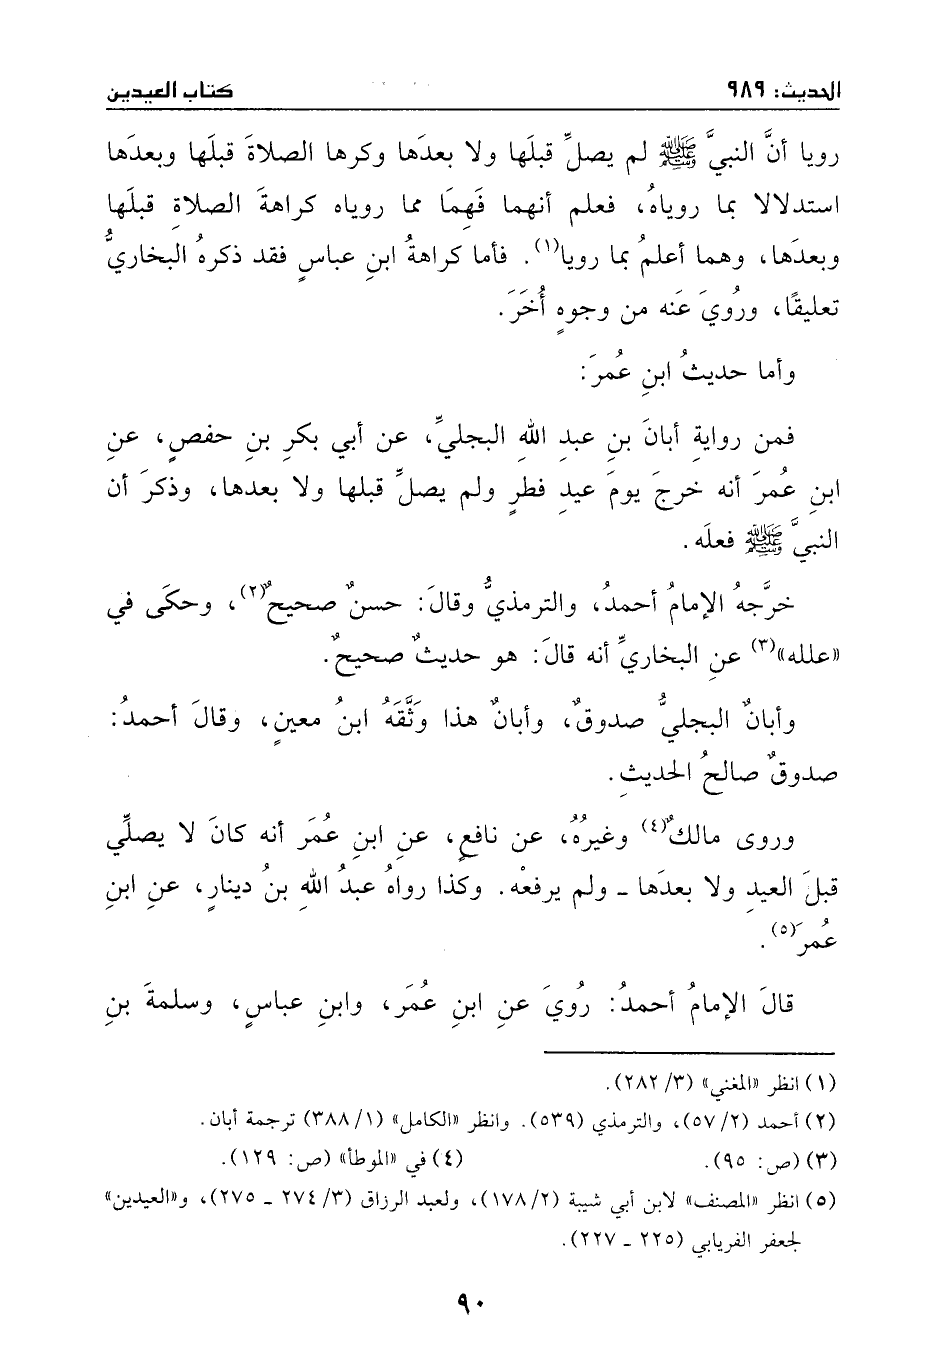 الحديث: ٩٨٩ كتاب العيدين
رويا أنَّ النبيَّ ﷺ لم يصلِّ قبلَها ولا بعدَها وكرها الصلاةَ قبلَها وبعدَها
استدلالا بما روياهُ، فعلم أنهما فَهِمَا مما روياه كراهةَ الصلاةِ قبلَها
وبعدَها، وهما أعلمُ بما رويا(١). فأما كراهةُ ابنِ عباسٍ فقد ذكرهُ البخاريُّ
تعليقًا، ورُويَ عَنه من وجوهٍ أُخَرَ.
وأما حديثُ ابنِ عُمرَ:
فمن روايةِ أبانَ بنِ عبدِ اللهِ البجليِّ، عن أبي بكرِ بنِ حفصٍ، عنِ
ابنِ عُمرَ أنه خرجَ يومَ عيدِ فطرٍ ولم يصلِّ قبلها ولا بعدها، وذكرَ أن
النبيَّ ﷺ فعلَه.
خرَّجهُ الإمامُ أحمدُ، والترمذيُّ وقالَ: حسنٌ صحيحٌ(٢)، وحكَى في
«علله»(٣) عنِ البخاريِّ أنه قالَ: هو حديثٌ صحيحٌ.
وأبانٌ البجليُّ صدوقٌ، وأبانٌ هذا وَثَّقَهُ ابنُ معينٍ، وقالَ أحمدُ:
صدوقٌ صالحُ الحديثِ.
وروى مالكٌ(٤) وغيرُهُ، عن نافعٍ، عنِ ابنِ عُمَر أنه كانَ لا يصلِّي
قبلَ العيدِ ولا بعدَها ـ ولم يرفعْه. وكذا رواهُ عبدُ اللهِ بنُ دينارٍ، عنِ ابنِ
عُمرَ(٥).
قالَ الإمامُ أحمدُ: رُويَ عنِ ابنِ عُمَر، وابنِ عباسٍ، وسلمةَ بنِ
(١) انظر «المغني» (٣/ ٢٨٢).
(٢) أحمد (٢/ ٥٧)، والترمذي (٥٣٩). وانظر «الكامل» (١/ ٣٨٨) ترجمة أبان.
(٣) (ص: ٩٥). (٤) في «الموطأ» (ص: ١٢٩).
(٥) انظر «المصنف» لابن أبي شيبة (٢/ ١٧٨)، ولعبد الرزاق (٣/ ٢٧٤ ـ ٢٧٥)، و«العيدين»
لجعفر الفريابي (٢٢٥ ـ ٢٢٧).
٩٠